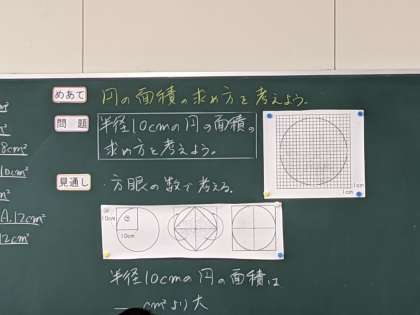 めあて 円の面積の求め方を考えよう。
問題 半径10cmの円の面積の
求め方を考えよう。
見通し ・方眼の数で考える。
1cm
1cm
10cm
10cm
8cm²
10cm²
A.12cm²
12cm²
半径10cmの円の面積は
cm²より大